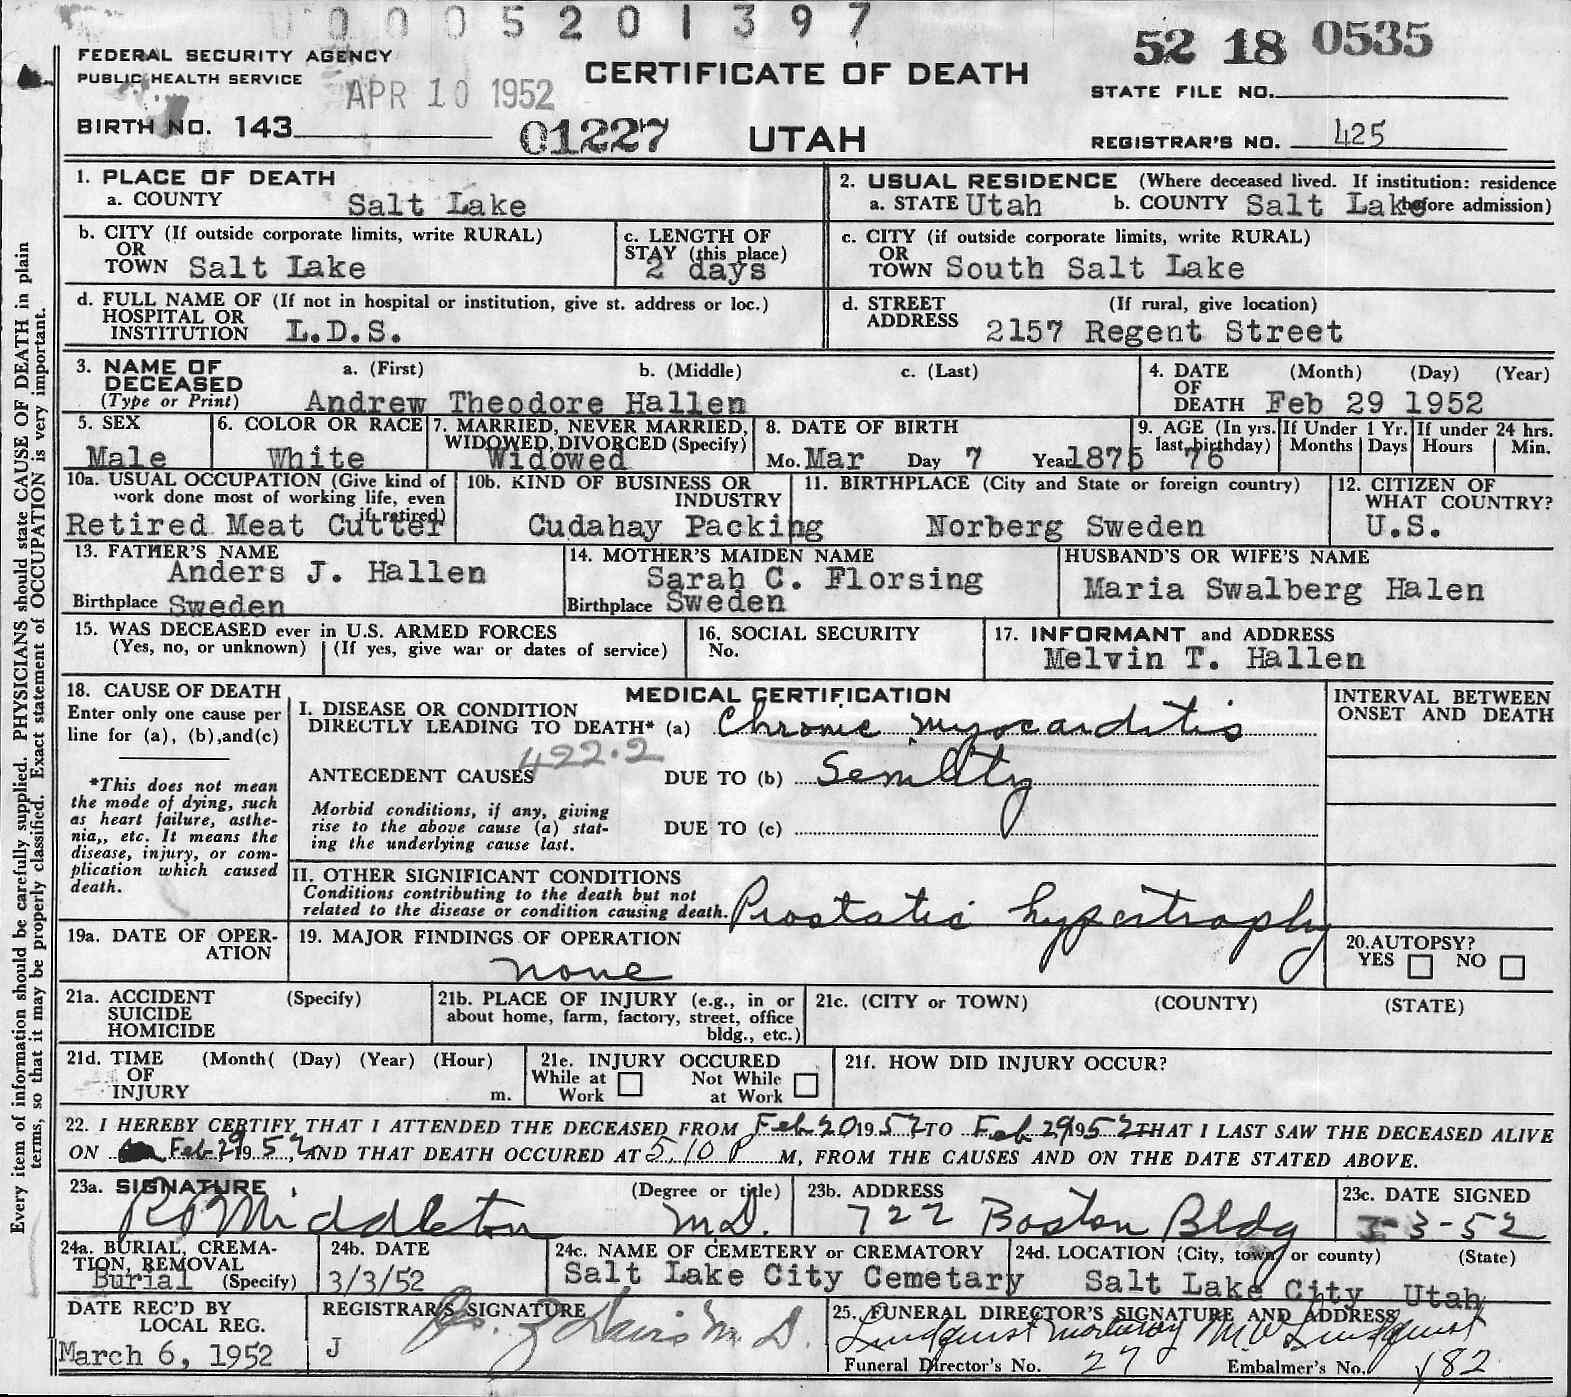 0005201397
FEDERAL SECURITY AGENCY
PUBLIC HEALTH SERVICE
APR 10 1952
CERTIFICATE OF DEATH
52 18 0535
STATE FILE NO.
BIRTH NO. 143
01227
UTAH
REGISTRAR'S NO. 425
1. PLACE OF DEATH
a. COUNTY Salt Lake
2. USUAL RESIDENCE (Where deceased lived. If institution: residence before admission)
a. STATE Utah b. COUNTY Salt Lake
b. CITY (If outside corporate limits, write RURAL)
OR
TOWN Salt Lake
c. LENGTH OF
STAY (this place)
2 days
c. CITY (if outside corporate limits, write RURAL)
OR
TOWN South Salt Lake
d. FULL NAME OF (If not in hospital or institution, give st. address or loc.)
HOSPITAL OR
INSTITUTION L.D.S.
d. STREET (If rural, give location)
ADDRESS 2157 Regent Street
3. NAME OF
DECEASED
(Type or Print)
a. (First) b. (Middle) c. (Last)
Andrew Theodore Hallen
4. DATE (Month) (Day) (Year)
OF
DEATH Feb 29 1952
5. SEX
Male
6. COLOR OR RACE
White
7. MARRIED, NEVER MARRIED,
WIDOWED, DIVORCED (Specify)
Widowed
8. DATE OF BIRTH
Mo. Mar Day 7 Year 1875
9. AGE (In yrs.
last birthday)
76
If Under 1 Yr.
Months Days
If under 24 hrs.
Hours Min.
10a. USUAL OCCUPATION (Give kind of
work done most of working life, even
if retired)
Retired Meat Cutter
10b. KIND OF BUSINESS OR
INDUSTRY
Cudahay Packing
11. BIRTHPLACE (City and State or foreign country)
Norberg Sweden
12. CITIZEN OF
WHAT COUNTRY?
U.S.
13. FATHER'S NAME
Anders J. Hallen
Birthplace Sweden
14. MOTHER'S MAIDEN NAME
Sarah C. Florsing
Birthplace Sweden
HUSBAND'S OR WIFE'S NAME
Maria Swalberg Halen
15. WAS DECEASED ever in U.S. ARMED FORCES
(Yes, no, or unknown) (If yes, give war or dates of service)
16. SOCIAL SECURITY
No.
17. INFORMANT and ADDRESS
Melvin T. Hallen
18. CAUSE OF DEATH
Enter only one cause per
line for (a), (b), and (c)
*This does not mean
the mode of dying, such
as heart failure, asthe-
nia,, etc. It means the
disease, injury, or com-
plication which caused
death.
MEDICAL CERTIFICATION
I. DISEASE OR CONDITION
DIRECTLY LEADING TO DEATH* (a) Chronic myocarditis
422.2
ANTECEDENT CAUSES
DUE TO (b) Senility
Morbid conditions, if any, giving
rise to the above cause (a) stat-
ing the underlying cause last.
DUE TO (c)
INTERVAL BETWEEN
ONSET AND DEATH
II. OTHER SIGNIFICANT CONDITIONS
Conditions contributing to the death but not
related to the disease or condition causing death.
Prostatic hypertrophy
19a. DATE OF OPER-
ATION
19. MAJOR FINDINGS OF OPERATION
none
20. AUTOPSY?
YES NO
21a. ACCIDENT (Specify)
SUICIDE
HOMICIDE
21b. PLACE OF INJURY (e.g., in or
about home, farm, factory, street, office
bldg., etc.)
21c. (CITY or TOWN) (COUNTY) (STATE)
21d. TIME (Month( (Day) (Year) (Hour)
OF
INJURY m.
21e. INJURY OCCURED
While at Work Not While at Work
21f. HOW DID INJURY OCCUR?
22. I HEREBY CERTIFY THAT I ATTENDED THE DECEASED FROM Feb 20 1952 TO Feb 29 1952 THAT I LAST SAW THE DECEASED ALIVE
ON Feb 29 1952, AND THAT DEATH OCCURED AT 5:10 P M, FROM THE CAUSES AND ON THE DATE STATED ABOVE.
23a. SIGNATURE (Degree or title)
Middleton M.D.
23b. ADDRESS
722 Boston Bldg
23c. DATE SIGNED
3-3-52
24a. BURIAL, CREMA-
TION, REMOVAL
(Specify)
Burial
24b. DATE
3/3/52
24c. NAME OF CEMETERY or CREMATORY
Salt Lake City Cemetary
24d. LOCATION (City, town, or county) (State)
Salt Lake City Utah
DATE REC'D BY
LOCAL REG.
March 6, 1952
REGISTRAR'S SIGNATURE
J
Davis M.D.
25. FUNERAL DIRECTOR'S SIGNATURE AND ADDRESS
Lindquist Mortuary M W Lindquist
Funeral Director's No. 27 Embalmer's No. 182
Every item of information should be carefully supplied. PHYSICIANS should state CAUSE OF DEATH in plain
terms, so that it may be properly classified. Exact statement of OCCUPATION is very important.